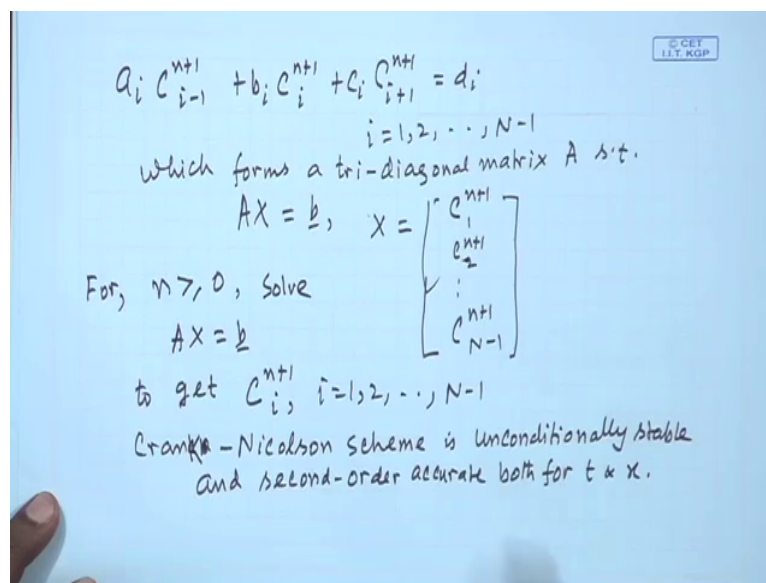 © CET
I.I.T. KGP
a_i C_{i-1}^{n+1} + b_i C_i^{n+1} + c_i C_{i+1}^{n+1} = d_i
i = 1, 2, ..., N-1
which forms a tri-diagonal matrix A s.t.
AX = b, X = [C_1^{n+1} C_2^{n+1} ⋮ C_{N-1}^{n+1}]
For, n ≥ 0, Solve
AX = b
to get C_i^{n+1}, i = 1, 2, ..., N-1
Crank-Nicolson scheme is unconditionally stable
and second-order accurate both for t & x.